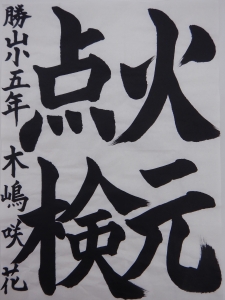 火元
点検
勝山小五年 木嶋咲花